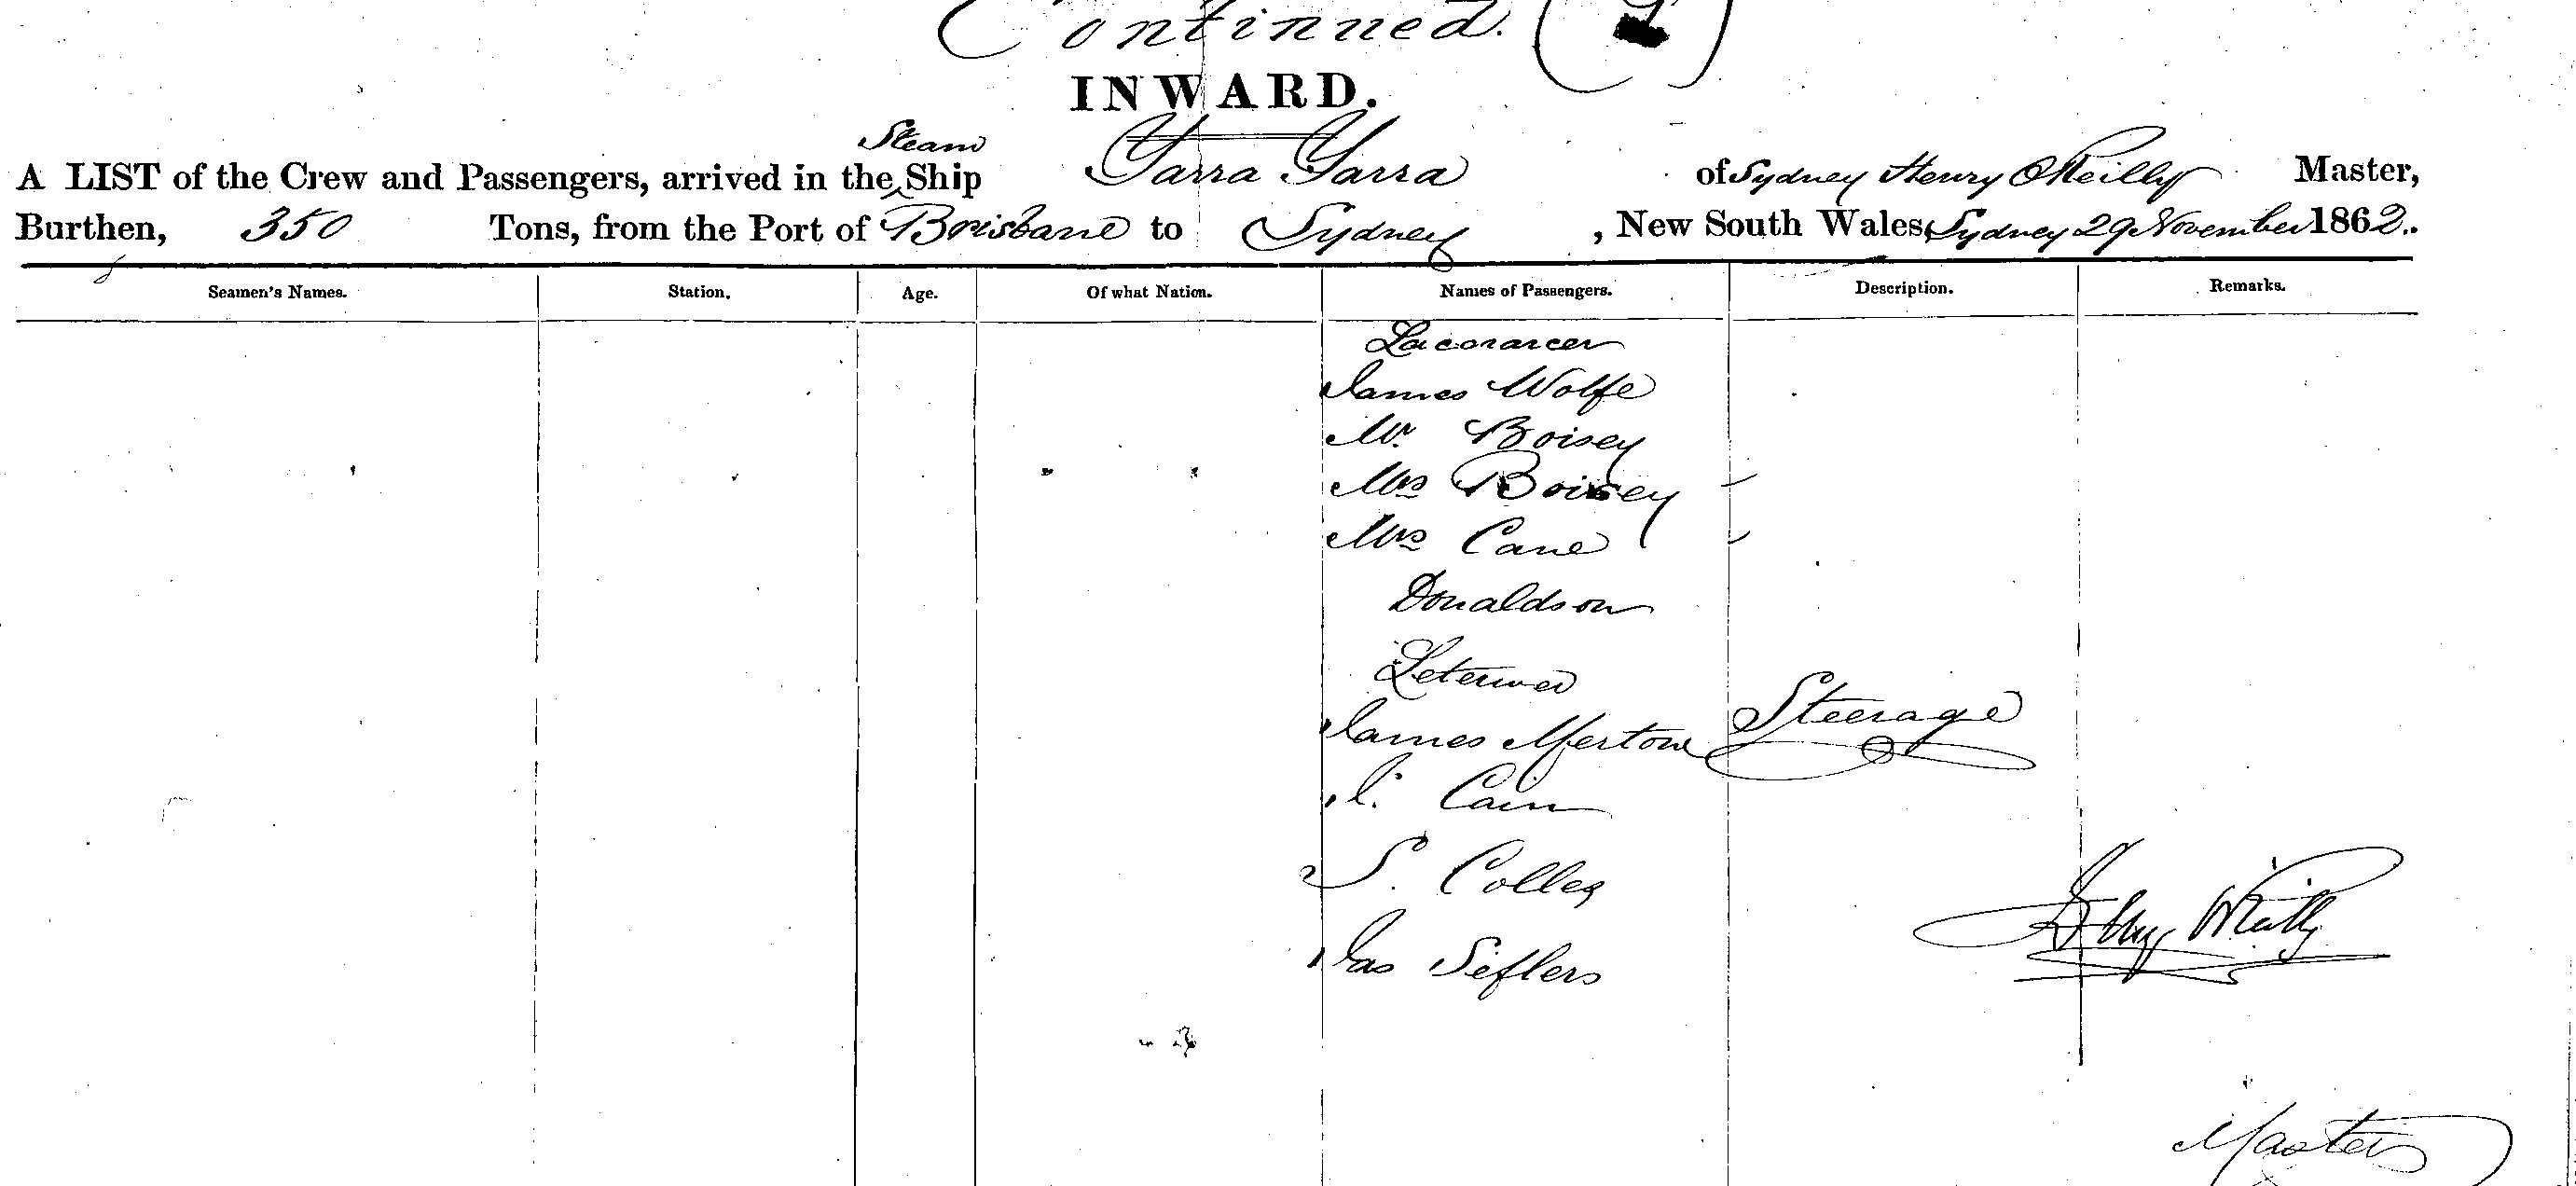 Continued.
INWARD.
A LIST of the Crew and Passengers, arrived in the Steam Ship Yarra Yarra of Sydney Henry O'Reilly Master,
Burthen, 350 Tons, from the Port of Brisbane to Sydney, New South Wales, Sydney 29 November 1862.
Seamen's Names. Station. Age. Of what Nation. Names of Passengers. Description. Remarks.
James Wolfe
Mr. Boisey
Mrs Boisey
Mrs Cane
Donaldson
James Merton Steerage
Cain
S. Colles
Jas
Master